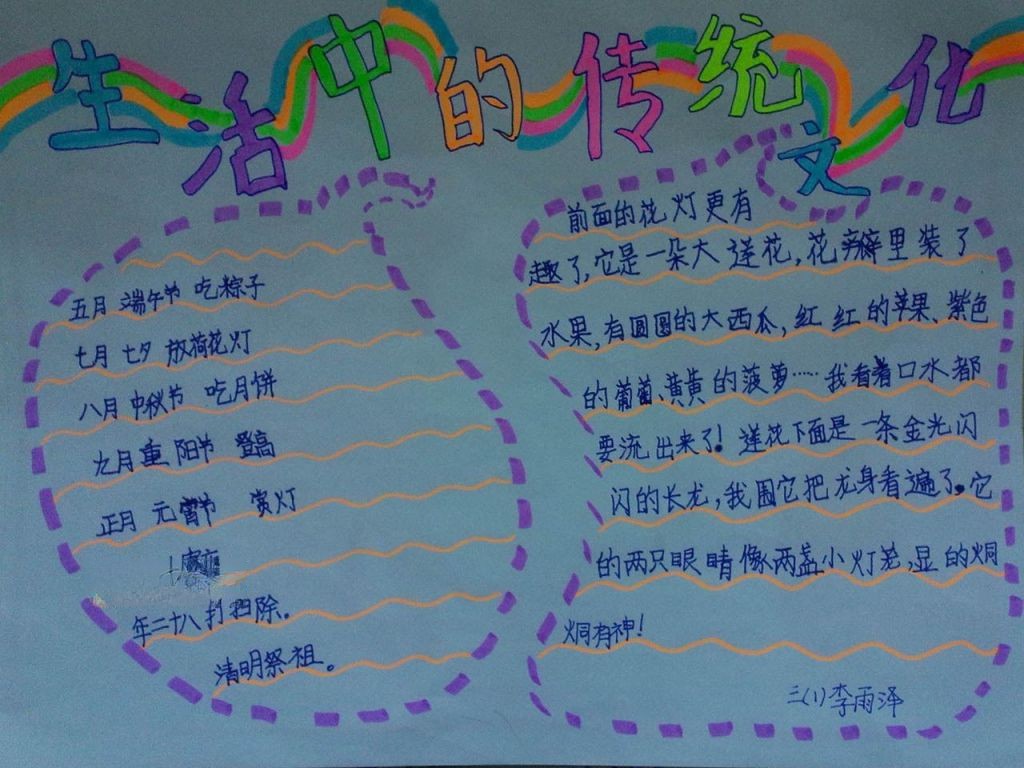 生活中的传统文化
五月 端午节 吃粽子
七月 七夕 放荷花灯
八月 中秋节 吃月饼
九月 重阳节 登高
正月 元宵节 赏灯
年二十八 打扫除。
清明祭祖。
前面的花灯更有
趣了,它是一朵大莲花,花瓣里装了
水果,有圆圆的大西瓜,红红的苹果、紫色
的葡萄、黄黄的菠萝……我看着口水都
要流出来了!莲花下面是一条金光闪
闪的长龙,我围它把龙身看遍了。它
的两只眼睛像两盏小灯笼,显的炯
炯有神!
三(1)李雨泽